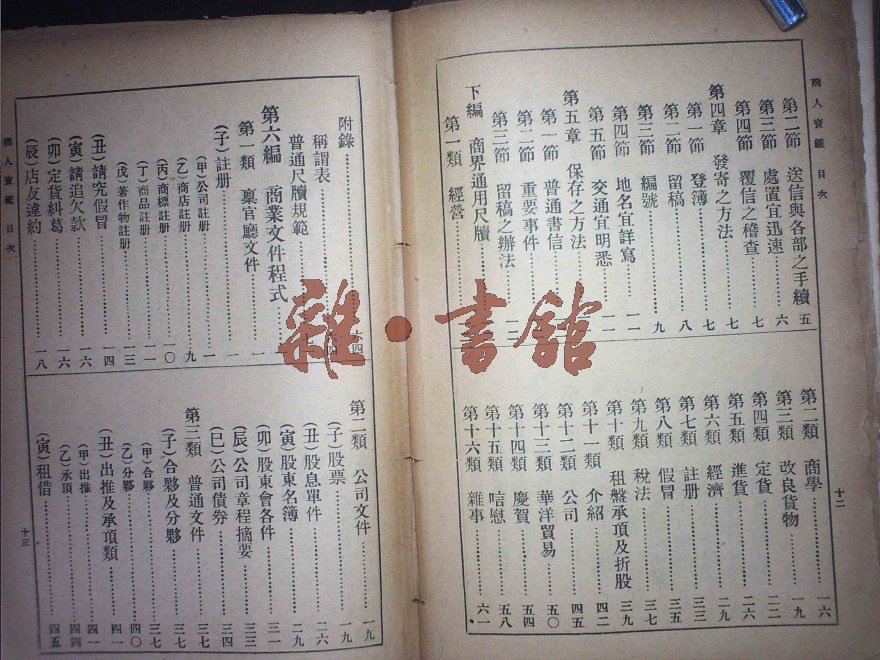 商人寶鑑 目次
第二節 送信與各部之手續 五
第三節 處置宜迅速 六
第四節 覆信之稽查 七
第四章 發寄之方法 七
第一節 登簿 七
第二節 留稿 八
第三節 編號 九
第四節 地名宜詳寫 一一
第五節 交通宜明悉
第五章 保存之方法
第一節 普通書信
第二節 重要事件
第三節 留稿之辦法
下編 商界通用尺牘
第一類 經營
第二類 商學 一六
第三類 改良貨物 一九
第四類 定貨 二二
第五類 進貨 二六
第六類 經濟 二九
第七類 註册 三三
第八類 假冒 三五
第九類 稅法 三七
第十類 租盤承頂及折股 三九
第十一類 介紹 四二
第十二類 公司 四五
第十三類 華洋貿易 五〇
第十四類 慶賀 五四
第十五類 唁慰 五八
第十六類 雜事 六一
十二
附錄
稱謂表
普通尺牘規範
第六編 商業文件程式
第一類 稟官廳文件 一
(子)註册 一
(甲)公司註册 一
(乙)商店註册 九
(丙)商標註册 一〇
(丁)商品註册 一一
(戊)著作物註册 一三
(丑)請究假冒 一四
(寅)請追欠款 一六
(卯)定貨糾葛 一六
(辰)店友違約 一八
第二類 公司文件 一九
(子)股票 一九
(丑)股息單件 二六
(寅)股東名簿 二九
(卯)股東會各件 三一
(辰)公司章程摘要 三三
(巳)公司債券 三四
第三類 普通文件 三七
(子)合夥及分夥 三七
(甲)合夥 三七
(乙)分夥 四〇
(丑)出推及承頂類 四一
(甲)出推 四一
(乙)承頂 四四
(寅)租借 四五
商人寶鑑 目次
十三
雜·書館